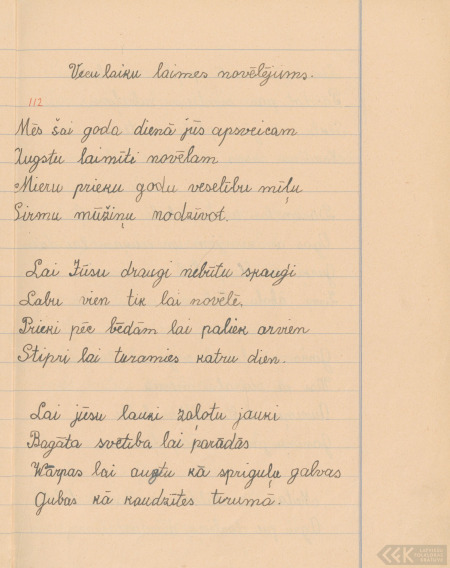 Vecu laiku laimes novēlējums.
112
Mēs šai goda dienā jūs apsveicam
Augstu laimīti novēlam
Mieru prieku godu veselību mīļu
Sirmu mūžiņu nodzīvot.
Lai Jūsu draugi nebūtu skauģi
Labu vien tik lai novēlē.
Prieki pēc bēdām lai paliek arvien
Stipri lai turamies katru dien.
Lai jūsu lauki zaļotu jauki
Bagāta svētība lai parādās
Wārpas lai augtu kā spriguļu galvas
Gubas kā kaudzītes tīrumā.